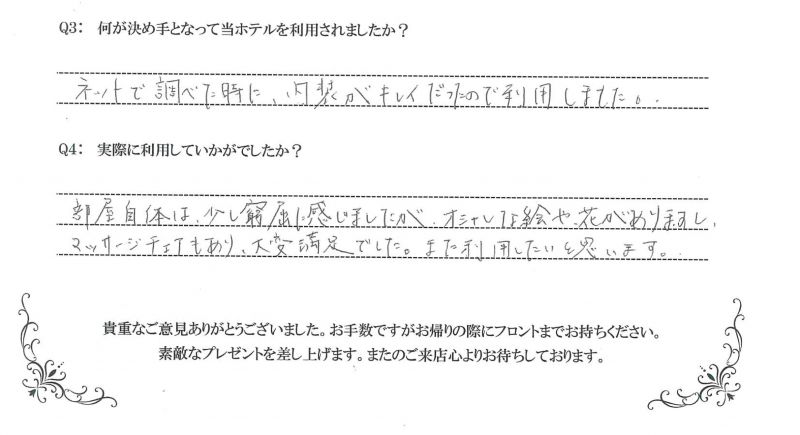 Q3： 何が決め手となって当ホテルを利用されましたか？
ネットで調べた時に、内装がキレイだったので利用しました。
Q4： 実際に利用していかがでしたか？
部屋自体は、少し窮屈に感じましたが、オシャレな絵や、花がありますし、
マッサージチェアもあり、大変満足でした。また利用したいと思います。
貴重なご意見ありがとうございました。お手数ですがお帰りの際にフロントまでお持ちください。
素敵なプレゼントを差し上げます。またのご来店心よりお待ちしております。